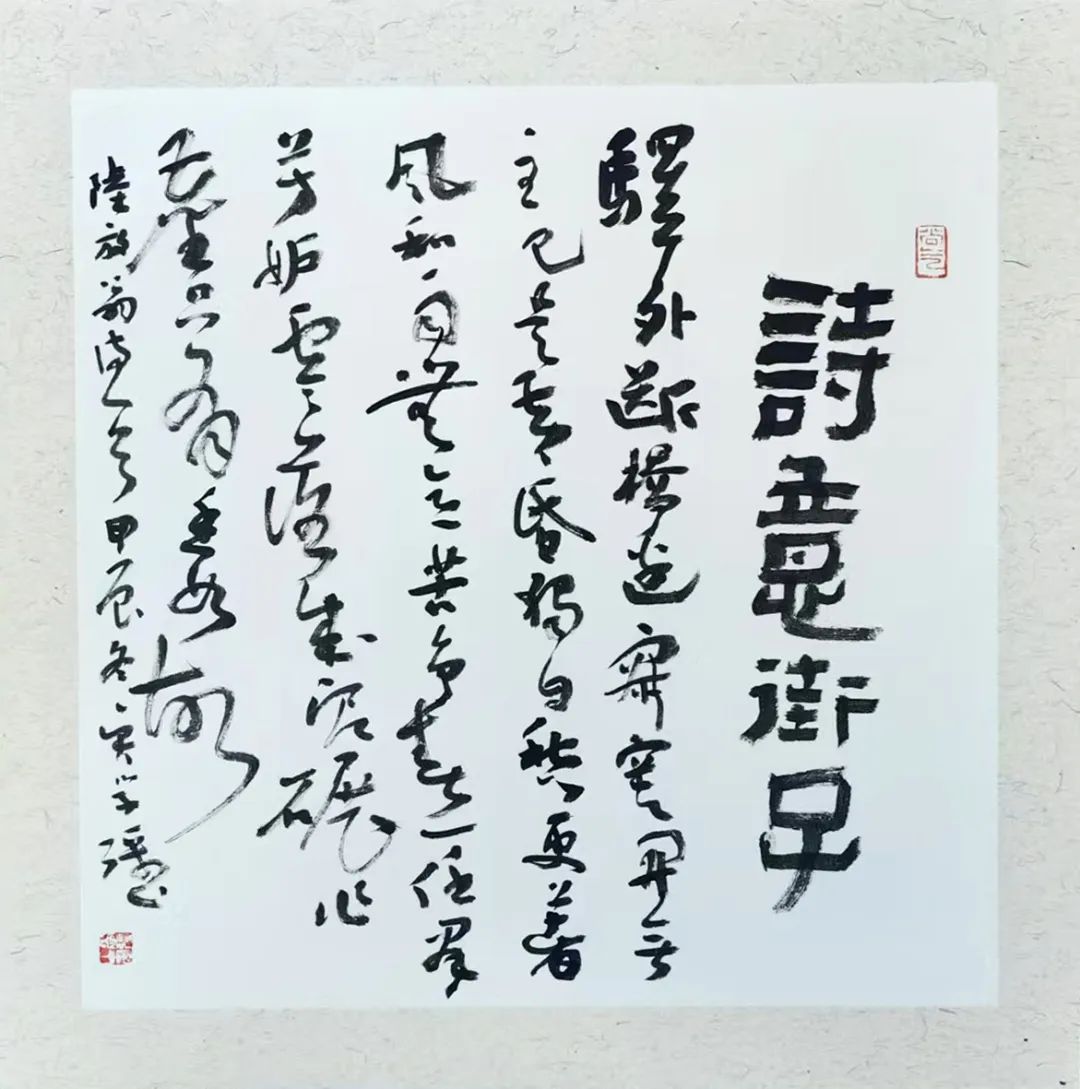 詩意街子
驛外斷橋邊寂寞開無
主已是黃昏獨自愁更著
風和雨無意苦爭春一任羣
芳妒零落成泥碾作
塵只有香如故
陸放翁詩 甲辰冬